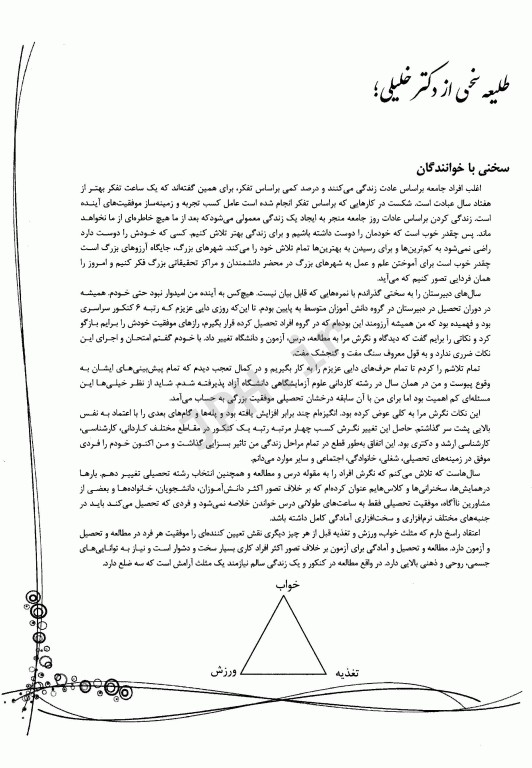 طلیعه سخنی از دکتر خلیلی؛
سخنی با خوانندگان
اغلب افراد جامعه براساس عادت زندگی می‌کنند و درصد کمی براساس تفکر، برای همین گفته‌اند که یک ساعت تفکر بهتر از
هفتاد سال عبادت است. شکست در کارهایی که براساس تفکر انجام شده است عامل کسب تجربه و زمینه‌ساز موفقیت‌های آینده
است. زندگی کردن براساس عادات روز جامعه منجر به ایجاد یک زندگی معمولی می‌شودکه بعد از ما هیچ خاطره‌ای از ما نخواهد
ماند. پس چقدر خوب است که خودمان را دوست داشته باشیم و برای زندگی بهتر تلاش کنیم. کسی که خودش را دوست دارد
راضی نمی‌شود به کم‌ترین‌ها و برای رسیدن به بهترین‌ها تمام تلاش خود را می‌کند. شهرهای بزرگ، جایگاه آرزوهای بزرگ است
چقدر خوب است برای آموختن علم و عمل به شهرهای بزرگ در محضر دانشمندان و مراکز تحقیقاتی بزرگ فکر کنیم و امروز را
همان فردایی تصور کنیم که می‌آید.
سال‌های دبیرستان را به سختی گذراندم با نمره‌هایی که قابل بیان نیست. هیچ‌کس به آینده من امیدوار نبود حتی خودم. همیشه
در دوران تحصیل در دبیرستان در گروه دانش آموزان متوسط به پایین بودم. تا این‌که روزی دایی عزیزم کـه رتبه ۶ کنکور سراسری
بود و فهمیده بود که من همیشه آرزومند این بوده‌ام که در گروه افراد تحصیل کرده قرار بگیرم، رازهای موفقیت خودش را برایم بازگو
کرد و نکاتی را برایم گفت که دیدگاه و نگرش مرا به مطالعه، درس، آزمون و دانشگاه تغییر داد. با خـودم گفتـم امتحـان و اجرای این
نکات ضرری ندارد و به قول معروف سنگ مفت و گنجشک مفت.
تمام تلاشم را کردم تا تمام حرف‌های دایی عزیزم را به کار بگیریم و در کمال تعجب دیدم که تمام پیش‌بینی‌های ایشان بـه
وقوع پیوست و من در همان سال در رشته کاردانی علوم آزمایشگاهی دانشگاه آزاد پذیرفتـه شـدم. شـاید از نظر خیلی‌ها ایـن
مسئله‌ای کم اهمیت بود اما برای من با آن سابقه درخشان تحصیلی موفقیت بزرگی به حساب می‌آمد.
این نکات نگرش مرا به کلی عوض کرده بود. انگیزه‌ام چند برابر افزایش یافته بود و پله‌ها و گام‌های بعدی را با اعتماد به نفـس
بالایی پشت سر گذاشتم. حاصل این تغییر نگـرش کسـب چهار مرتبـه رتبـه یـک کنکـور در مقـاطع مختلـف کـاردانی، کارشناسی،
کارشناسی ارشد و دکتری بود. این اتفاق به‌طور قطع در تمام مراحل زندگی من تاثیر بسـزایی گذاشـت و مـن اکنـون خـودم را فردی
موفق در زمینه‌های تحصیلی، شغلی، خانوادگی، اجتماعی و سایر موارد می‌دانم.
سال‌هاست که تلاش می‌کنم که نگرش افراد را به مقوله درس و مطالعه و همچنین انتخاب رشته تحصیلی تغییـر دهـم. بارهـا
درهمایش‌ها، سخنرانی‌ها و کلاس‌هایم عنوان کرده‌ام که بر خلاف تصور اکثـر دانـش‌آمـوزان، دانشجویان، خـانواده‌هـا و بعضـی از
مشاورین ناآگاه، موفقیت تحصیلی فقط به ساعت‌های طولانی درس خواندن خلاصه نمی‌شود و فردی که تحصیل می‌کنـد بایـد در
جنبه‌های مختلف نرم‌افزاری و سخت‌افزاری آمادگی کامل داشته باشد.
اعتقاد راسخ دارم که مثلث خواب، ورزش و تغذیه قبل از هر چیز دیگری نقش تعیین کننده‌ای را موفقیت هر فرد در مطالعه و تحصیل
و آزمون دارد. مطالعه و تحصیل و آمادگی برای آزمون بر خلاف تصور اکثر افراد کاری بسیار سخت و دشوار اسـت و نیـاز بـه توانایی‌های
جسمی، روحی و ذهنی بالایی دارد. در واقع مطالعه در کنکور و یک زندگی سالم نیازمند یک مثلث آرامش است که سه ضلع دارد.
خواب
ورزش
تغذیه